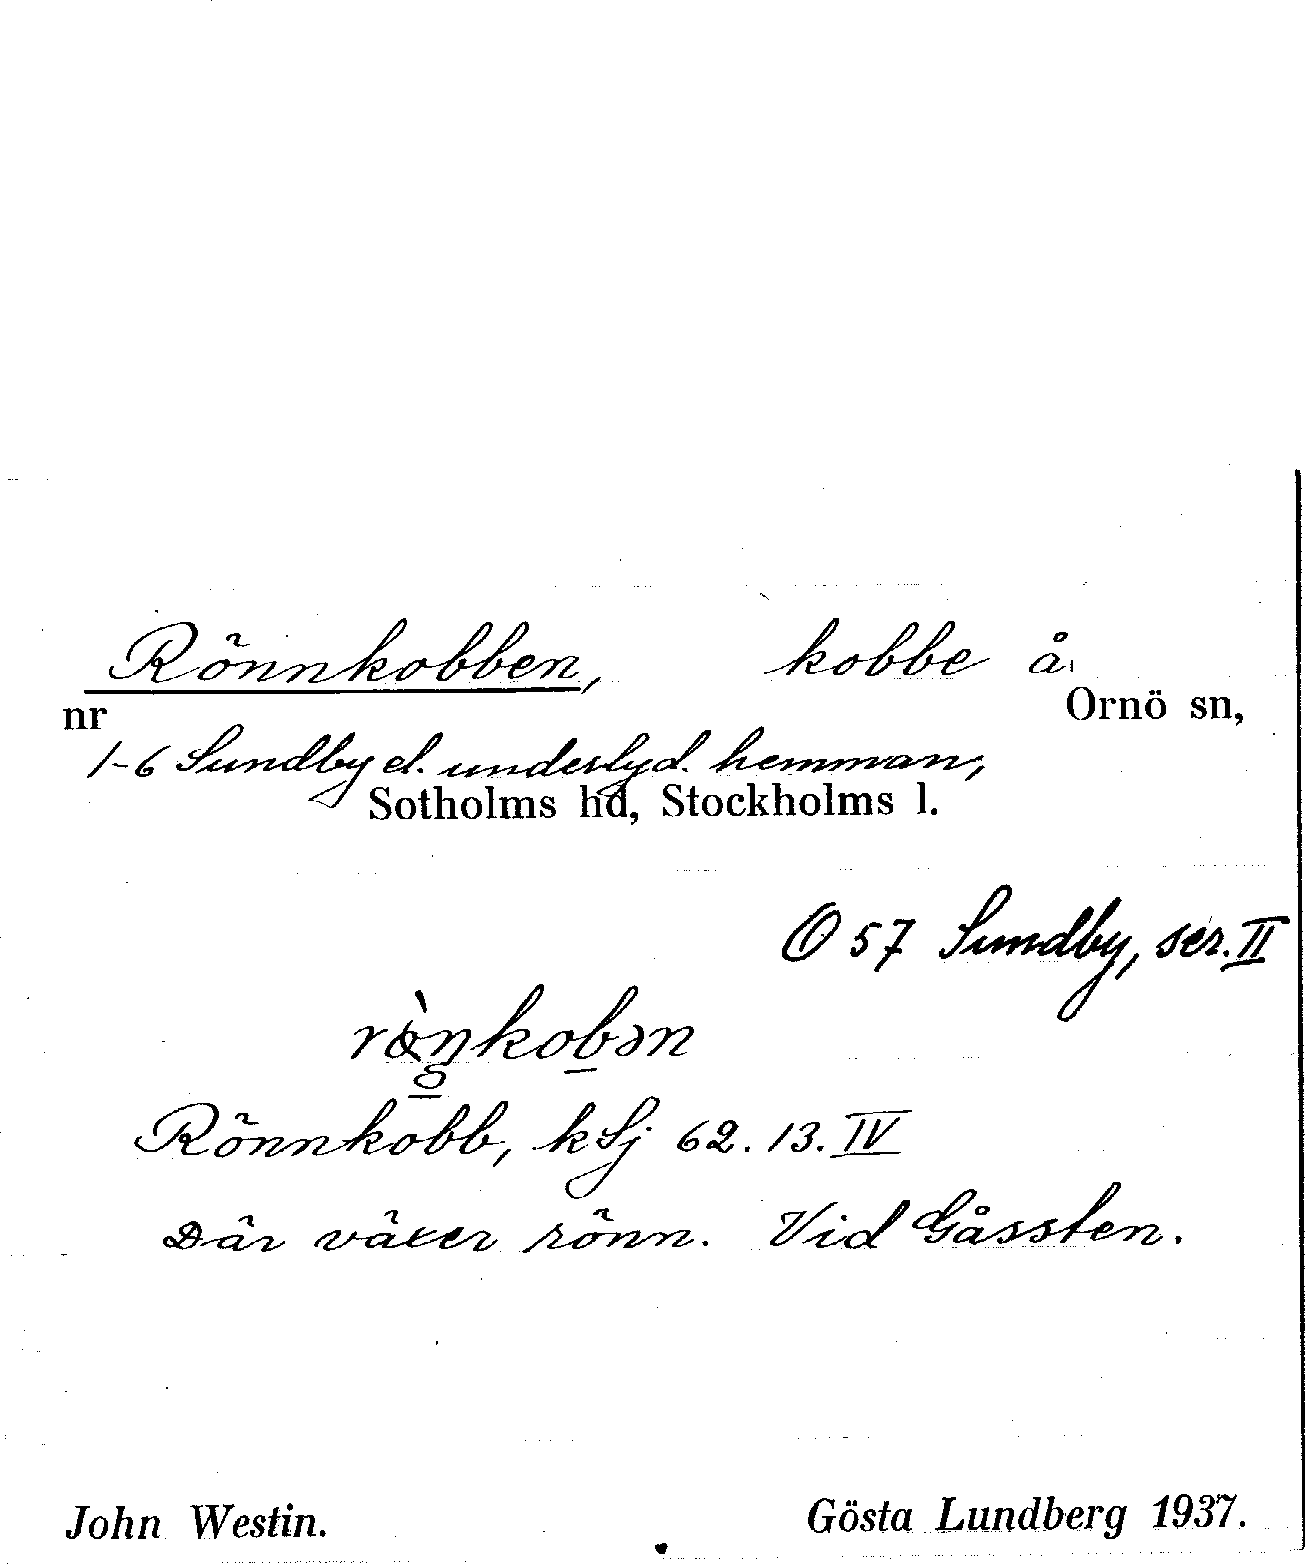 Rönnkobben, kobbe å
nr Ornö sn,
1-6 Sundby el. underlyd. hemman,
Sotholms hd, Stockholms l.
O 57 Sundby, ser. II
Rönnkobb, kSj 62. 13. IV
Där växer rönn. Vid Gåssten.
John Westin. Gösta Lundberg 1937.